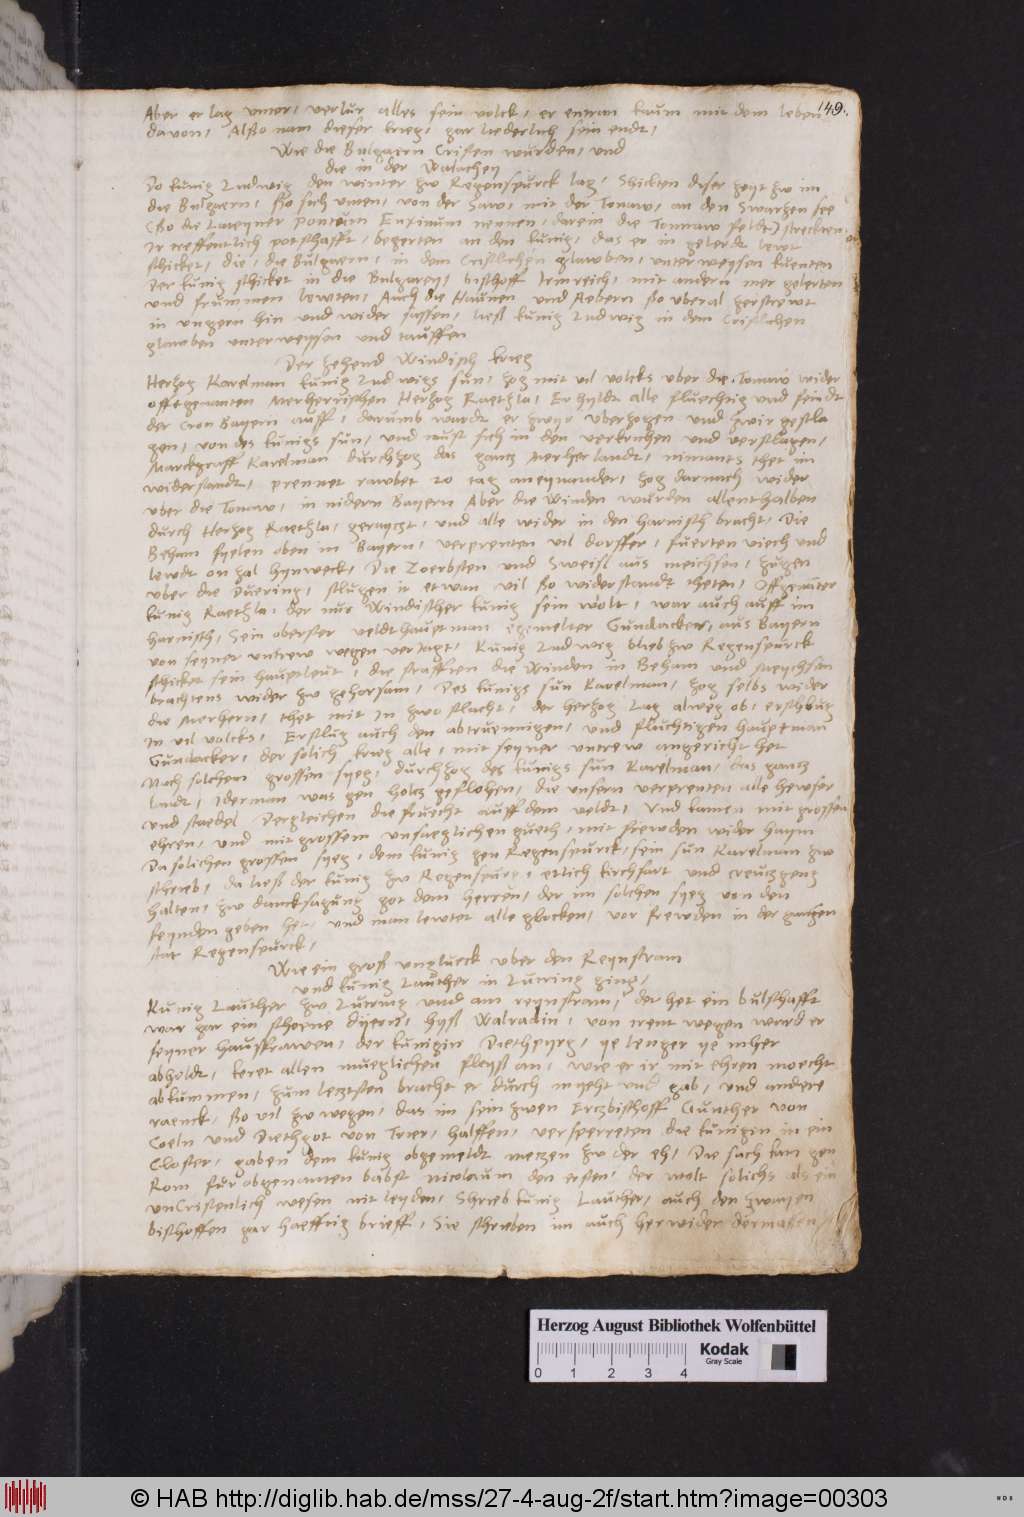 149.
Aber er lag unter, verlur alles sein volck, er entran kaum mit dem leben
davon, Alßo nam dieser krieg, gar liederlich sein endt,
Wie die Bulgaern Cristen wurden, und
die in der Walachey
Do kunig Ludwig den winter zw Regenspurck lag, Schickten diser zeyt zw im
die Bulgaern, ßo sich unten, von der Saw, mit der Tonaw, an den Swarzen see
(SSo die Lateyner Pontum Euxinum nennen, darein die Tonnaw feldt) streckten
Ir treffentlich potschafft, begerten an den kunig, das er in gelerdt lewt
schicket, die, die Bulgaern, in dem Cristlichen glawben, unterweysen kuenten
Der kunig schicket in die Bulgarey, bischoff Ermreich, mit andern mer gelerten
und frummen lewten, Auch die Haunen und Aebern ßo uberal zerstrewt
in ungern hin und wider sassen, ließ kunig Ludwig in dem Cristlichen
glawben unterweysen und tauffen
Der zehend Windisch krieg
Herzog Karelman kunig Ludwigs sun, zog mit vil volcks uber die Tonaw wider
offtgenanten Merherischen Herzog Raetzla, Er hyldt alle fluechtig und feindt
der Cron Bayern auff, darumb wardt er zwyr uberzogen und zwir geschla
gen, von des kunigs sun, und must sich in den verkrichen und verschlagen,
Marckgraff Karelman durchzog das gantz Merherlandt, nimants thet im
widerstandt, prennet rawbet 20 tag aneynander, zog darnach wider
uber die Tonaw, in nidern Bayern Aber die Winden wurden allenthalben
durch Herzog Raetzla, gerayczt, und alle wider in den harnisch bracht, Die
Beham fyelen oben in Bayern, verprenten vil dorffer, fuerten viech und
lewdt on zal hynweck, Die Zoerbsten und Sweisl aus meichsen, zugen
uber die Duering, schlugen ir etwan vil ßo widerstandt theten, Offgenanter
kunig Raetzla, der nur Windischer kunig sein wolt, war auch auff im
harnisch, Sein oberster veldthauptman egemelter Gundacker, aus Bayern
von seyner untrew wegen veriagt, Kunig Ludwig blieb zw Regenspurck
schicket sein hauptleut, die strafften die Winden in Beham und Meychsen
brachtens wider zw gehorsam, Des kunigs sun Karelman, zog selbs wider
die Merhern, thet mit in zwo schlacht, der herzog lag alweg ob, erschlug
in vil volcks, Erschlug auch den abtruennigen, und fluchtigen hauptman
Gundacker, der solich krieg alle, mit seyner untrew angericht het
Nach solchem grossen syeg, durchzog des kunigs sun Karelman, das gantz
landt, Iderman was gen holcz geflohen, die unsern verprenten alle hewser
und staedel Dergleichen die fruecht auff dem veldt, Und kamen mit grossen
ehren, und mit grossem unsaeglichen gueth, mit frewden wider haym
Da solichen grossen syeg, dem kunig gen Regenspurck, sein sun Karelman zw
schrieb, da ließ der kunig zw Regenspurg, etlich kirchfart und creuczgeng
halten, zw dancksagung got dem herren, der im solchen syeg von den
feynden geben het, und man lewtet alle glocken, vor frewden in der ganczen
stat Regenspurck,
Wie ein groß unglueck uber den Reynstram
und kunig Lauther in Lutring ging,
Kunig Lauther zw Lutring und am reynstram, der het ein bulschafft
war gar ein schoene dyern, hyß Walradin, von irent wegen ward er
seyner hausfrawen, der kunigin Diethpyrg, ye lenger ye mher
abholdt, keret allen mueglichen fleyß an, wie er ir mit ehren moecht
abkummen, zum letzsten bracht er durch myeht und gab, und andere
raenck, ßo vil zw wegen, das im sein zwen Erczbischoff Gunther von
Coeln und Diethgot von Trier, halffen, versperreten die kunigin in ein
Closter, gaben dem kunig obgemeldt meczen zw der eh, Die sach kam gen
Rom fur obgenanten babst nicolaum den ersten, der wolt solichs als ein
unCristenlich wesen nit leyden, Schrieb kunig Lauther, auch den zwayen
bischoffen gar haefftig brieff, Sie schrieben im auch herwider dermassen
Herzog August Bibliothek Wolfenbüttel
Kodak
Gray Scale
0 1 2 3 4
© HAB http://diglib.hab.de/mss/27-4-aug-2f/start.htm?image=00303